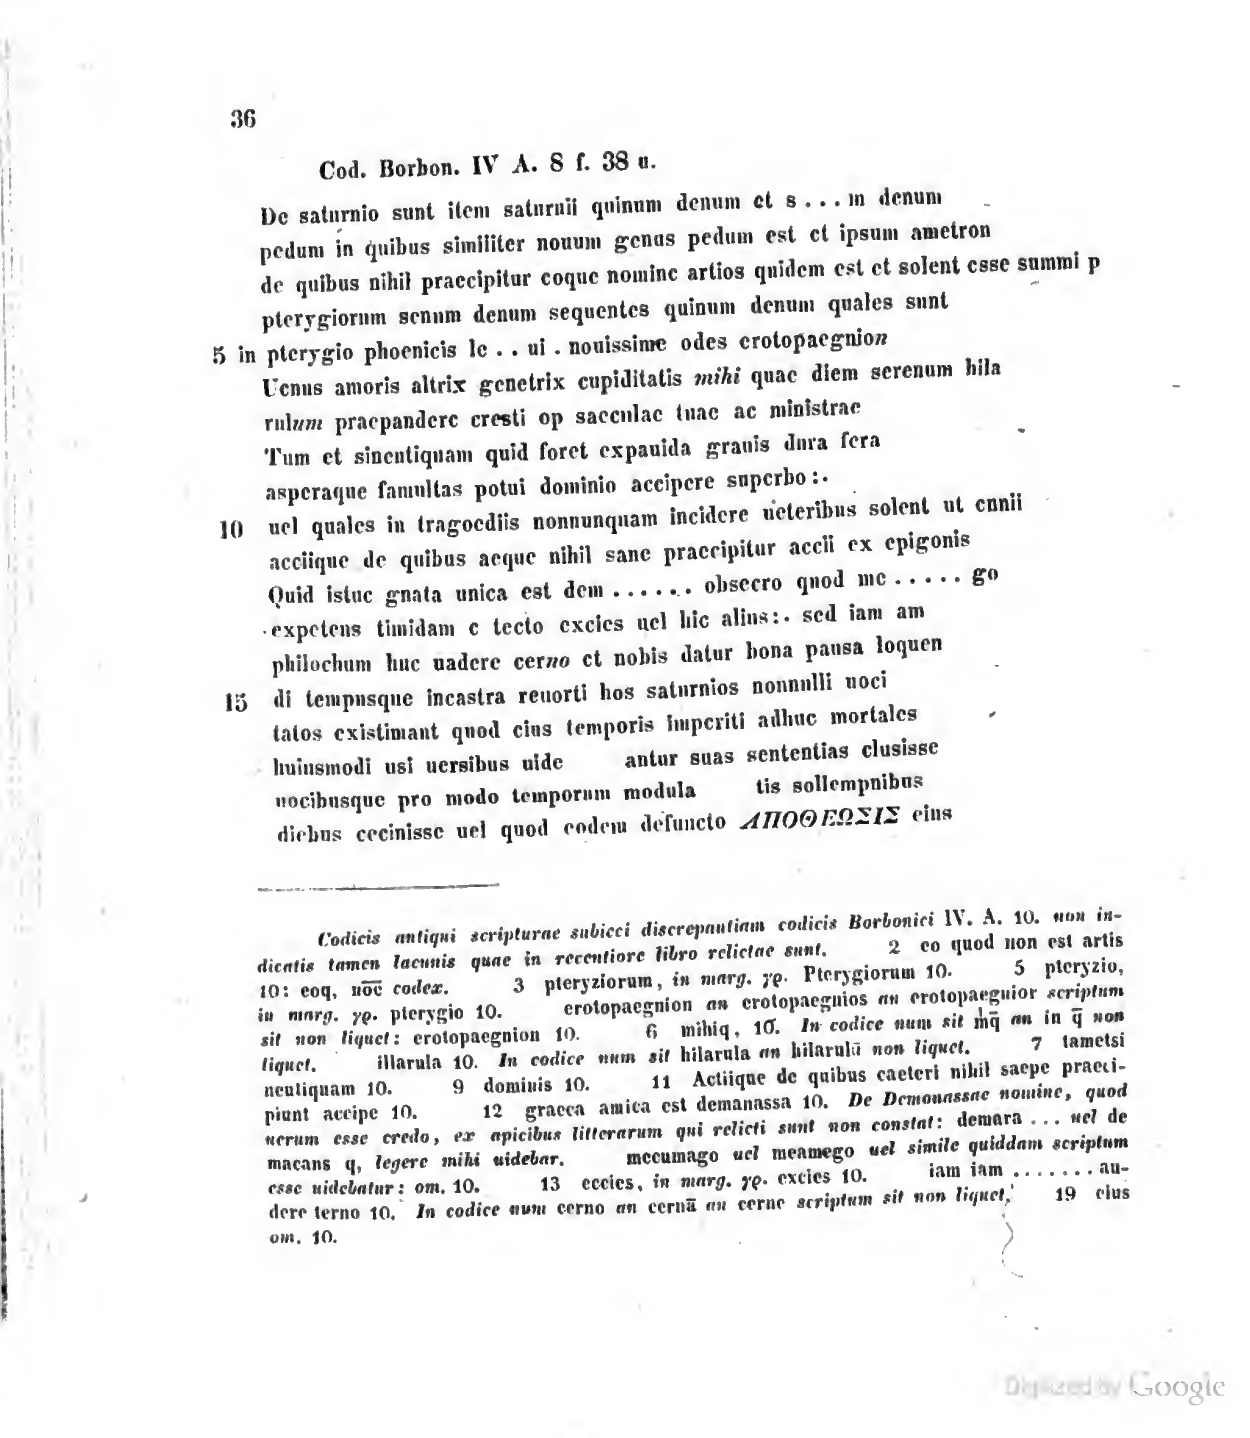 36
Cod. Borbon. IV A. 8 f. 38 u.
De saturnio sunt item saturnii quinum denum et s . . . m denum
pedum in quibus similiter nouum genus pedum est et ipsum ametron
de quibus nihil praecipitur eoque nomine artios quidem est et solent esse summi p
pterygiorum senum denum sequentes quinum denum quales sunt
5 in pterygio phoenicis le . . ui . nouissime odes erotopaegnion
Uenus amoris altrix genetrix cupiditatis mihi quae diem serenum hila
rulum praepandere cresti op saeculae tuae ac ministrae
Tum et sineutiquam quid foret expauida grauis dura fera
asperaque famultas potui dominio accipere superbo :·
10 uel quales in tragoediis nonnunquam incidere ueteribus solent ut ennii
acciique de quibus aeque nihil sane praecipitur accii ex epigonis
Quid istuc gnata unica est dem . . . . . . . obsecro quod me . . . . . go
expetens timidam e tecto excies uel hic alius:· sed iam am
philochum huc uadere cerno et nobis datur bona pausa loquen
15 di tempusque incastra reuorti hos saturnios nonnulli uoci
tatos existimant quod eius temporis imperiti adhuc mortales
huiusmodi usi uersibus uide antur suas sententias clusisse
uocibusque pro modo temporum modula tis sollempnibus
diebus cecinisse uel quod eodem defuncto ΑΠΟΘΕΩΣΙΣ eius
Codicis antiqui scripturae subieci discrepantiam codicis Borbonici IV. A. 10. non in-
dicatis tamen lacunis quae in recentiore libro relictae sunt. 2 eo quod non est artis
10: eoq, n̅o̅c̅ codex. 3 pteryziorum, in marg. γρ. Pterygiorum 10. 5 pteryzio,
in marg. γρ. pterygio 10. erotopaegnion an erotopaegnios an erotopaegnior scriptum
sit non liquet: erotopaegnion 10. 6 mihiq, 10. In codice num sit m̊q̄ an in q̄ non
liquet. illarula 10. In codice num sit hilarula an hilarulā non liquet. 7 tametsi
neutiquam 10. 9 dominis 10. 11 Actiique de quibus caeteri nihil saepe praeci-
piunt accipe 10. 12 graeca amica est demanassa 10. De Demonassae nomine, quod
uerum esse credo, ex apicibus litterarum qui relicti sunt non constat: demara . . . uel de
macans q, legere mihi uidebar. mecumago uel meamego uel simile quiddam scriptum
esse uidebatur: om. 10. 13 eccies, in marg. γρ. excies 10. iam iam . . . . . . . au-
dere terno 10. In codice num cerno an cernā an cerne scriptum sit non liquet. 19 eius
om. 10.
Digitized by Google